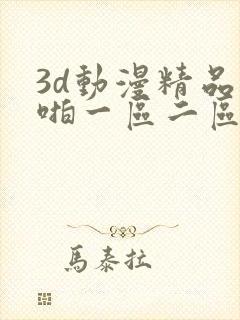 3d動漫精品
啪一區二區
馬泰拉